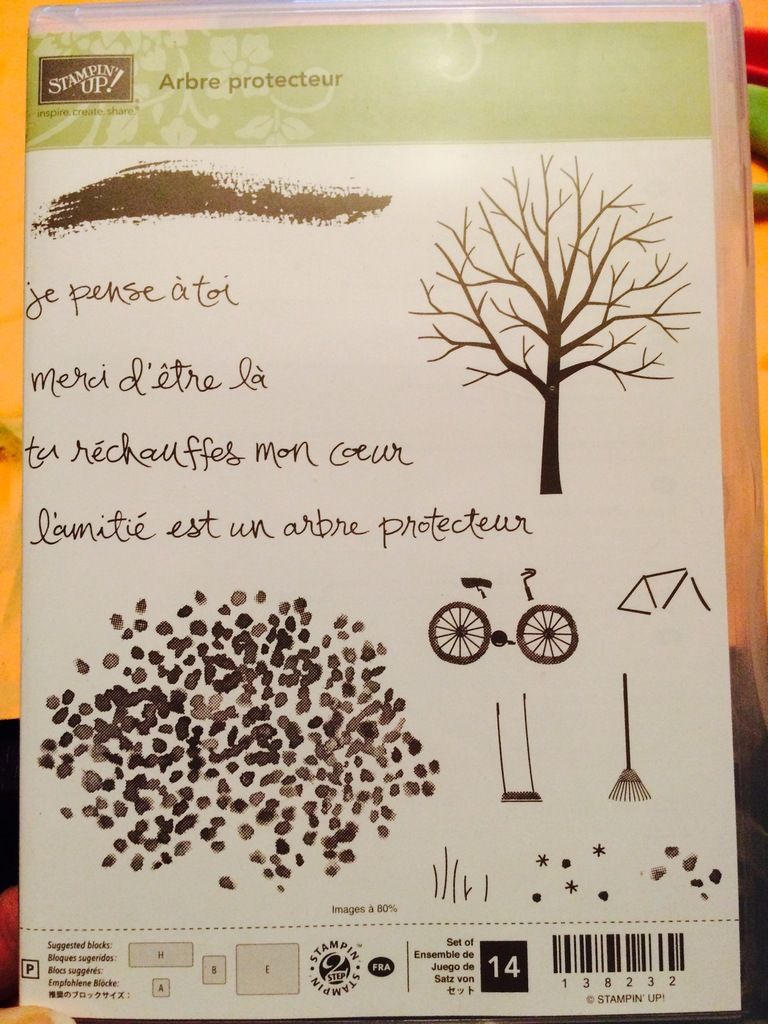 STAMPIN' UP!
inspire. create. share.®
Arbre protecteur
je pense à toi
merci d'être là
tu réchauffes mon cœur
l'amitié est un arbre protecteur
Images à 80%
P
Suggested blocks:
Bloques sugeridos:
Blocs suggérés:
Empfohlene Blöcke:
推奨のブロックサイズ:
H
A
B
E
STAMPIN' 2 STEP STAMPIN'
FRA
Set of
Ensemble de
Juego de
Satz von
セット
14
138232
© STAMPIN' UP!